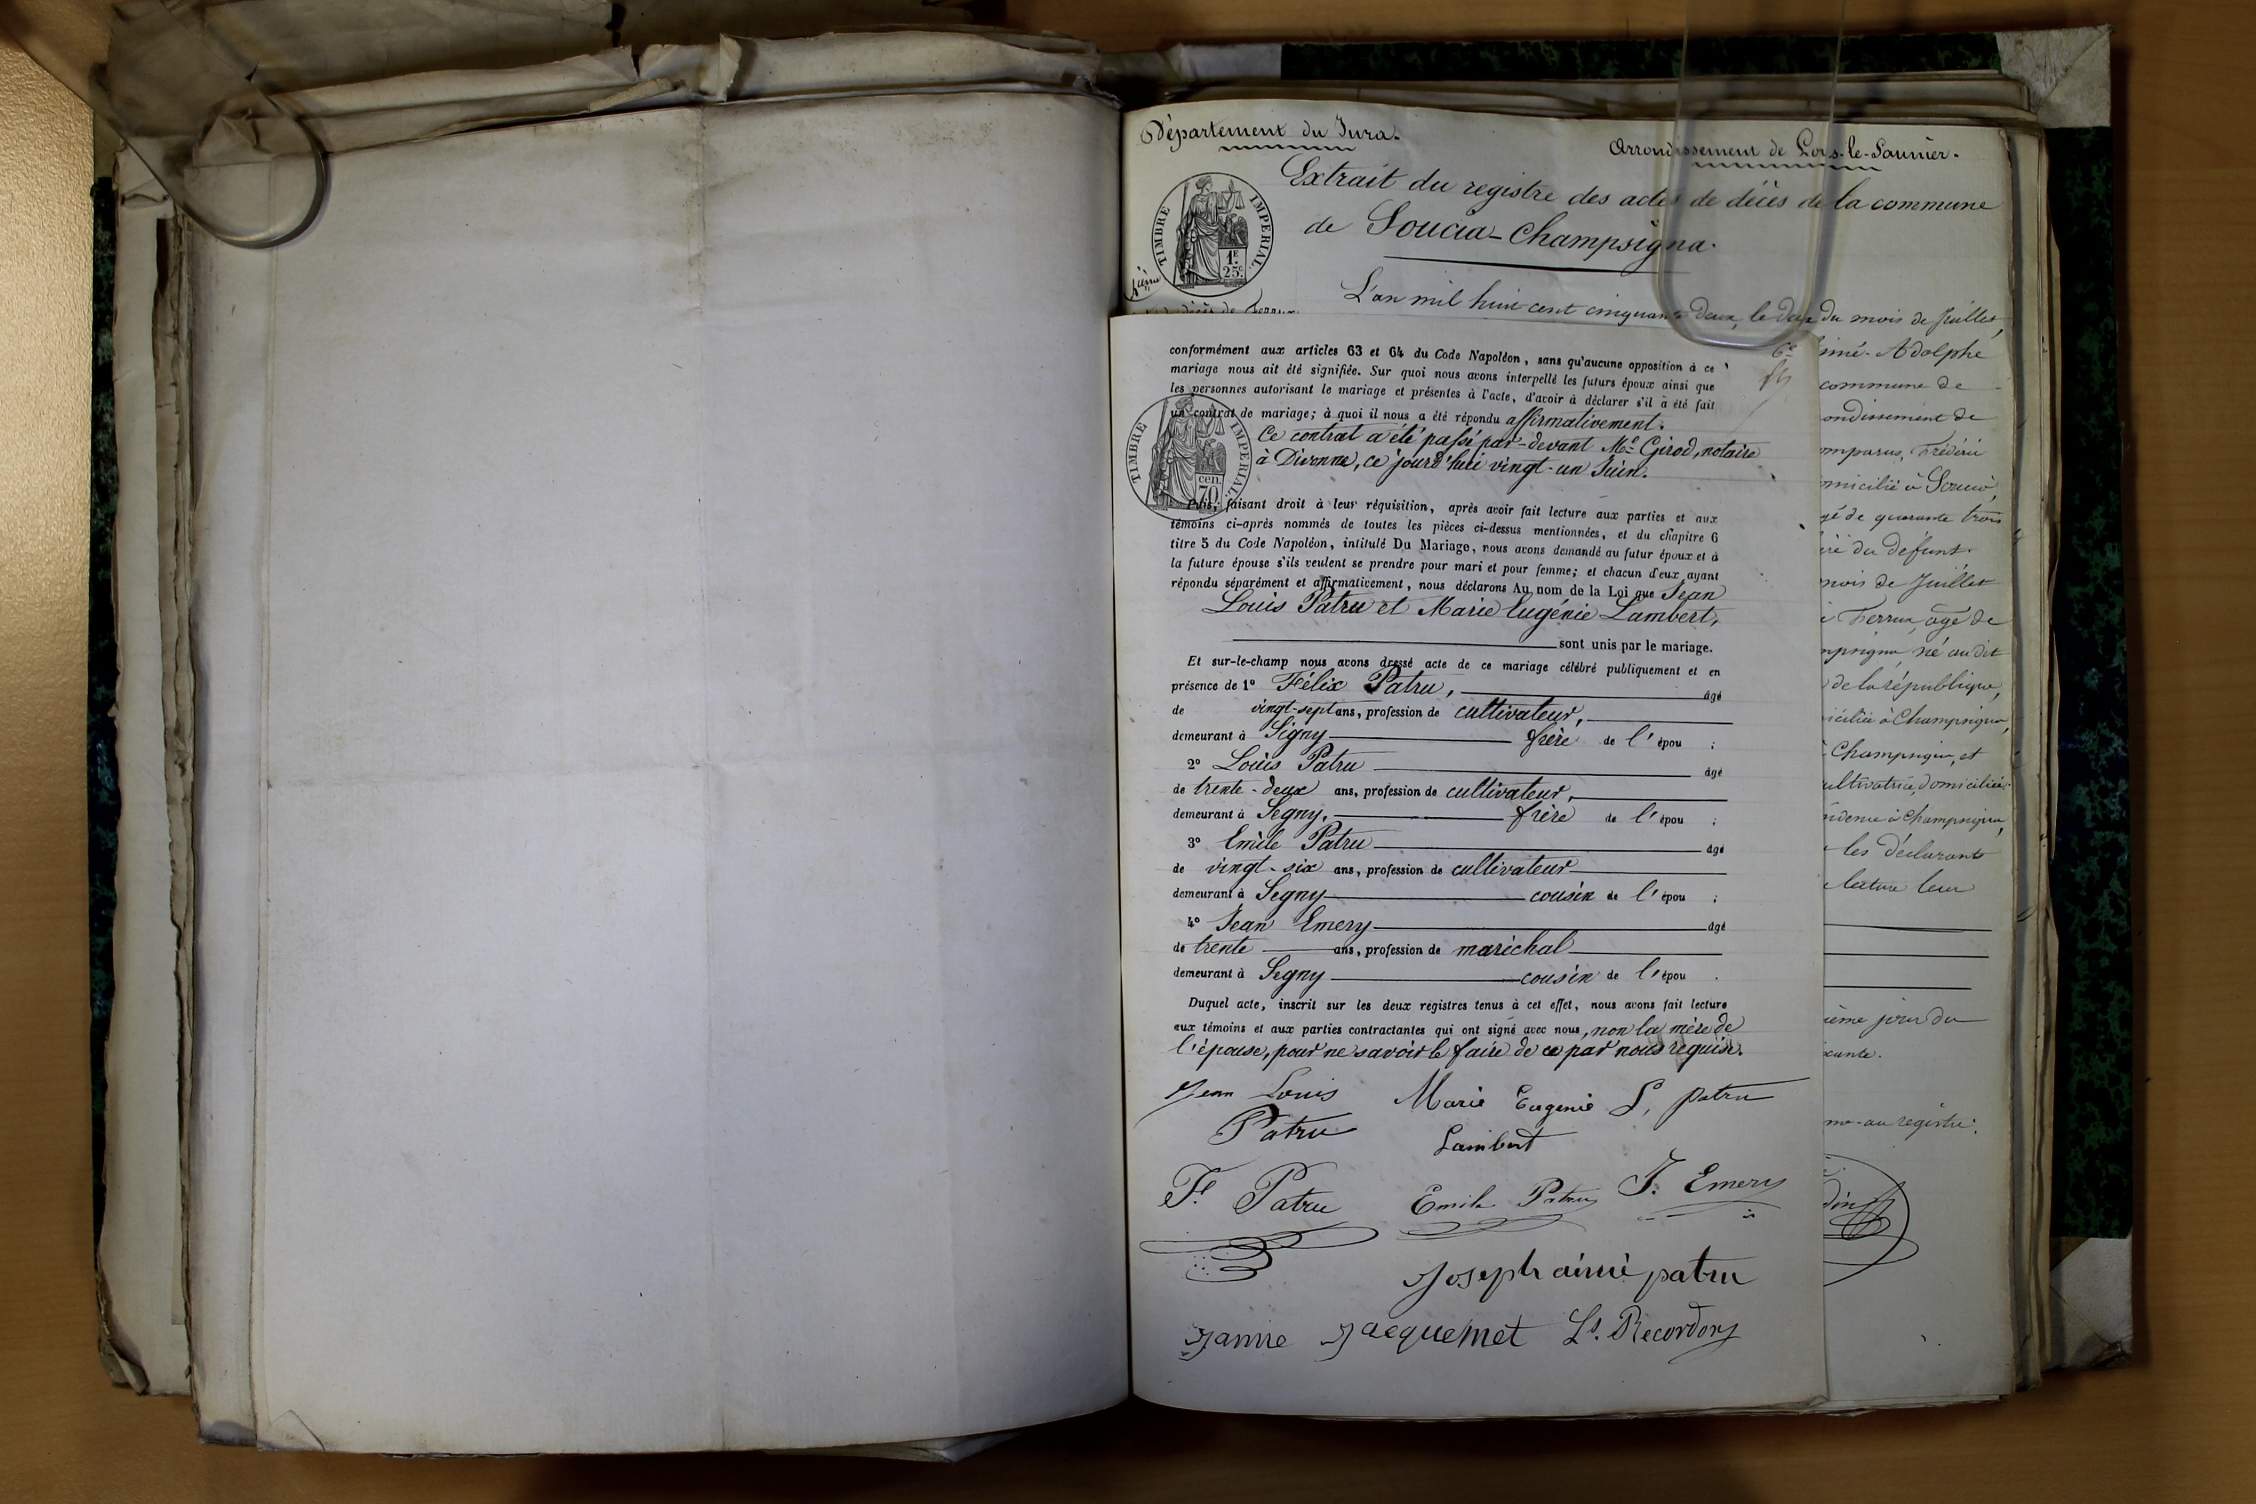 Département du Jura.
Arrondissement de Lons-le-Saunier.
Extrait du registre des actes de décès de la commune
de Soucia-Champsigna.
TIMBRE IMPERIAL.
1F. 25C.
L'an mil huit cent cinquante deux, le deux du mois de Juillet,
conformément aux articles 63 et 64 du Code Napoléon, sans qu'aucune opposition à ce
mariage nous ait été signifiée. Sur quoi nous avons interpellé les futurs époux ainsi que
les personnes autorisant le mariage et présentes à l'acte, d'avoir à déclarer s'il a été fait
un contrat de mariage; à quoi il nous a été répondu affirmativement.
Ce contrat a été passé par-devant Me Girod, notaire
à Divonne, ce jourd'hui vingt-un Juin.
TIMBRE IMPERIAL.
cen. 70
Puis, faisant droit à leur réquisition, après avoir fait lecture aux parties et aux
témoins ci-après nommés de toutes les pièces ci-dessus mentionnées, et du chapitre 6
titre 5 du Code Napoléon, intitulé Du Mariage, nous avons demandé au futur époux et à
la future épouse s'ils veulent se prendre pour mari et pour femme; et chacun d'eux ayant
répondu séparément et affirmativement, nous déclarons Au nom de la Loi que Jean
Louis Patru et Marie Eugénie Lambert,
sont unis par le mariage.
Et sur-le-champ nous avons dressé acte de ce mariage célébré publiquement et en
présence de 1º Félix Patru, âgé
de vingt-sept ans, profession de cultivateur,
demeurant à Segny frère de l'épou ;
2º Louis Patru âgé
de trente-deux ans, profession de cultivateur,
demeurant à Segny, frère de l'épou ;
3º Emile Patru âgé
de vingt-six ans, profession de cultivateur
demeurant à Segny cousin de l'épou ;
4º Jean Emery âgé
de trente ans, profession de maréchal
demeurant à Segny cousin de l'épou .
Duquel acte, inscrit sur les deux registres tenus à cet effet, nous avons fait lecture
aux témoins et aux parties contractantes qui ont signé avec nous, non la mère de
l'épouse, pour ne savoir le faire de ce par nous requise.
Jean Louis Marie Eugenie L, Patru
Patru Lambert
F. Patru Emile Patru J. Emery
Joseph aimé patru
Jacquemet Ls. Recordon
Adolphe
commune de
de
Frédéric
à Soucia,
de quarante trois
du défunt.
mois de Juillet
Ferrux, âgé de
né au dit
de la république,
à Champsigna,
Champsigna, et
cultivatrice, domiciliée
à Champsigna,
les déclarants
lecture leur
jour du
au registre.